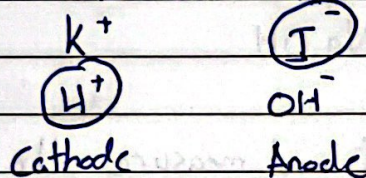 K⁺ I⁻
H⁺ OH⁻
Cathode Anode